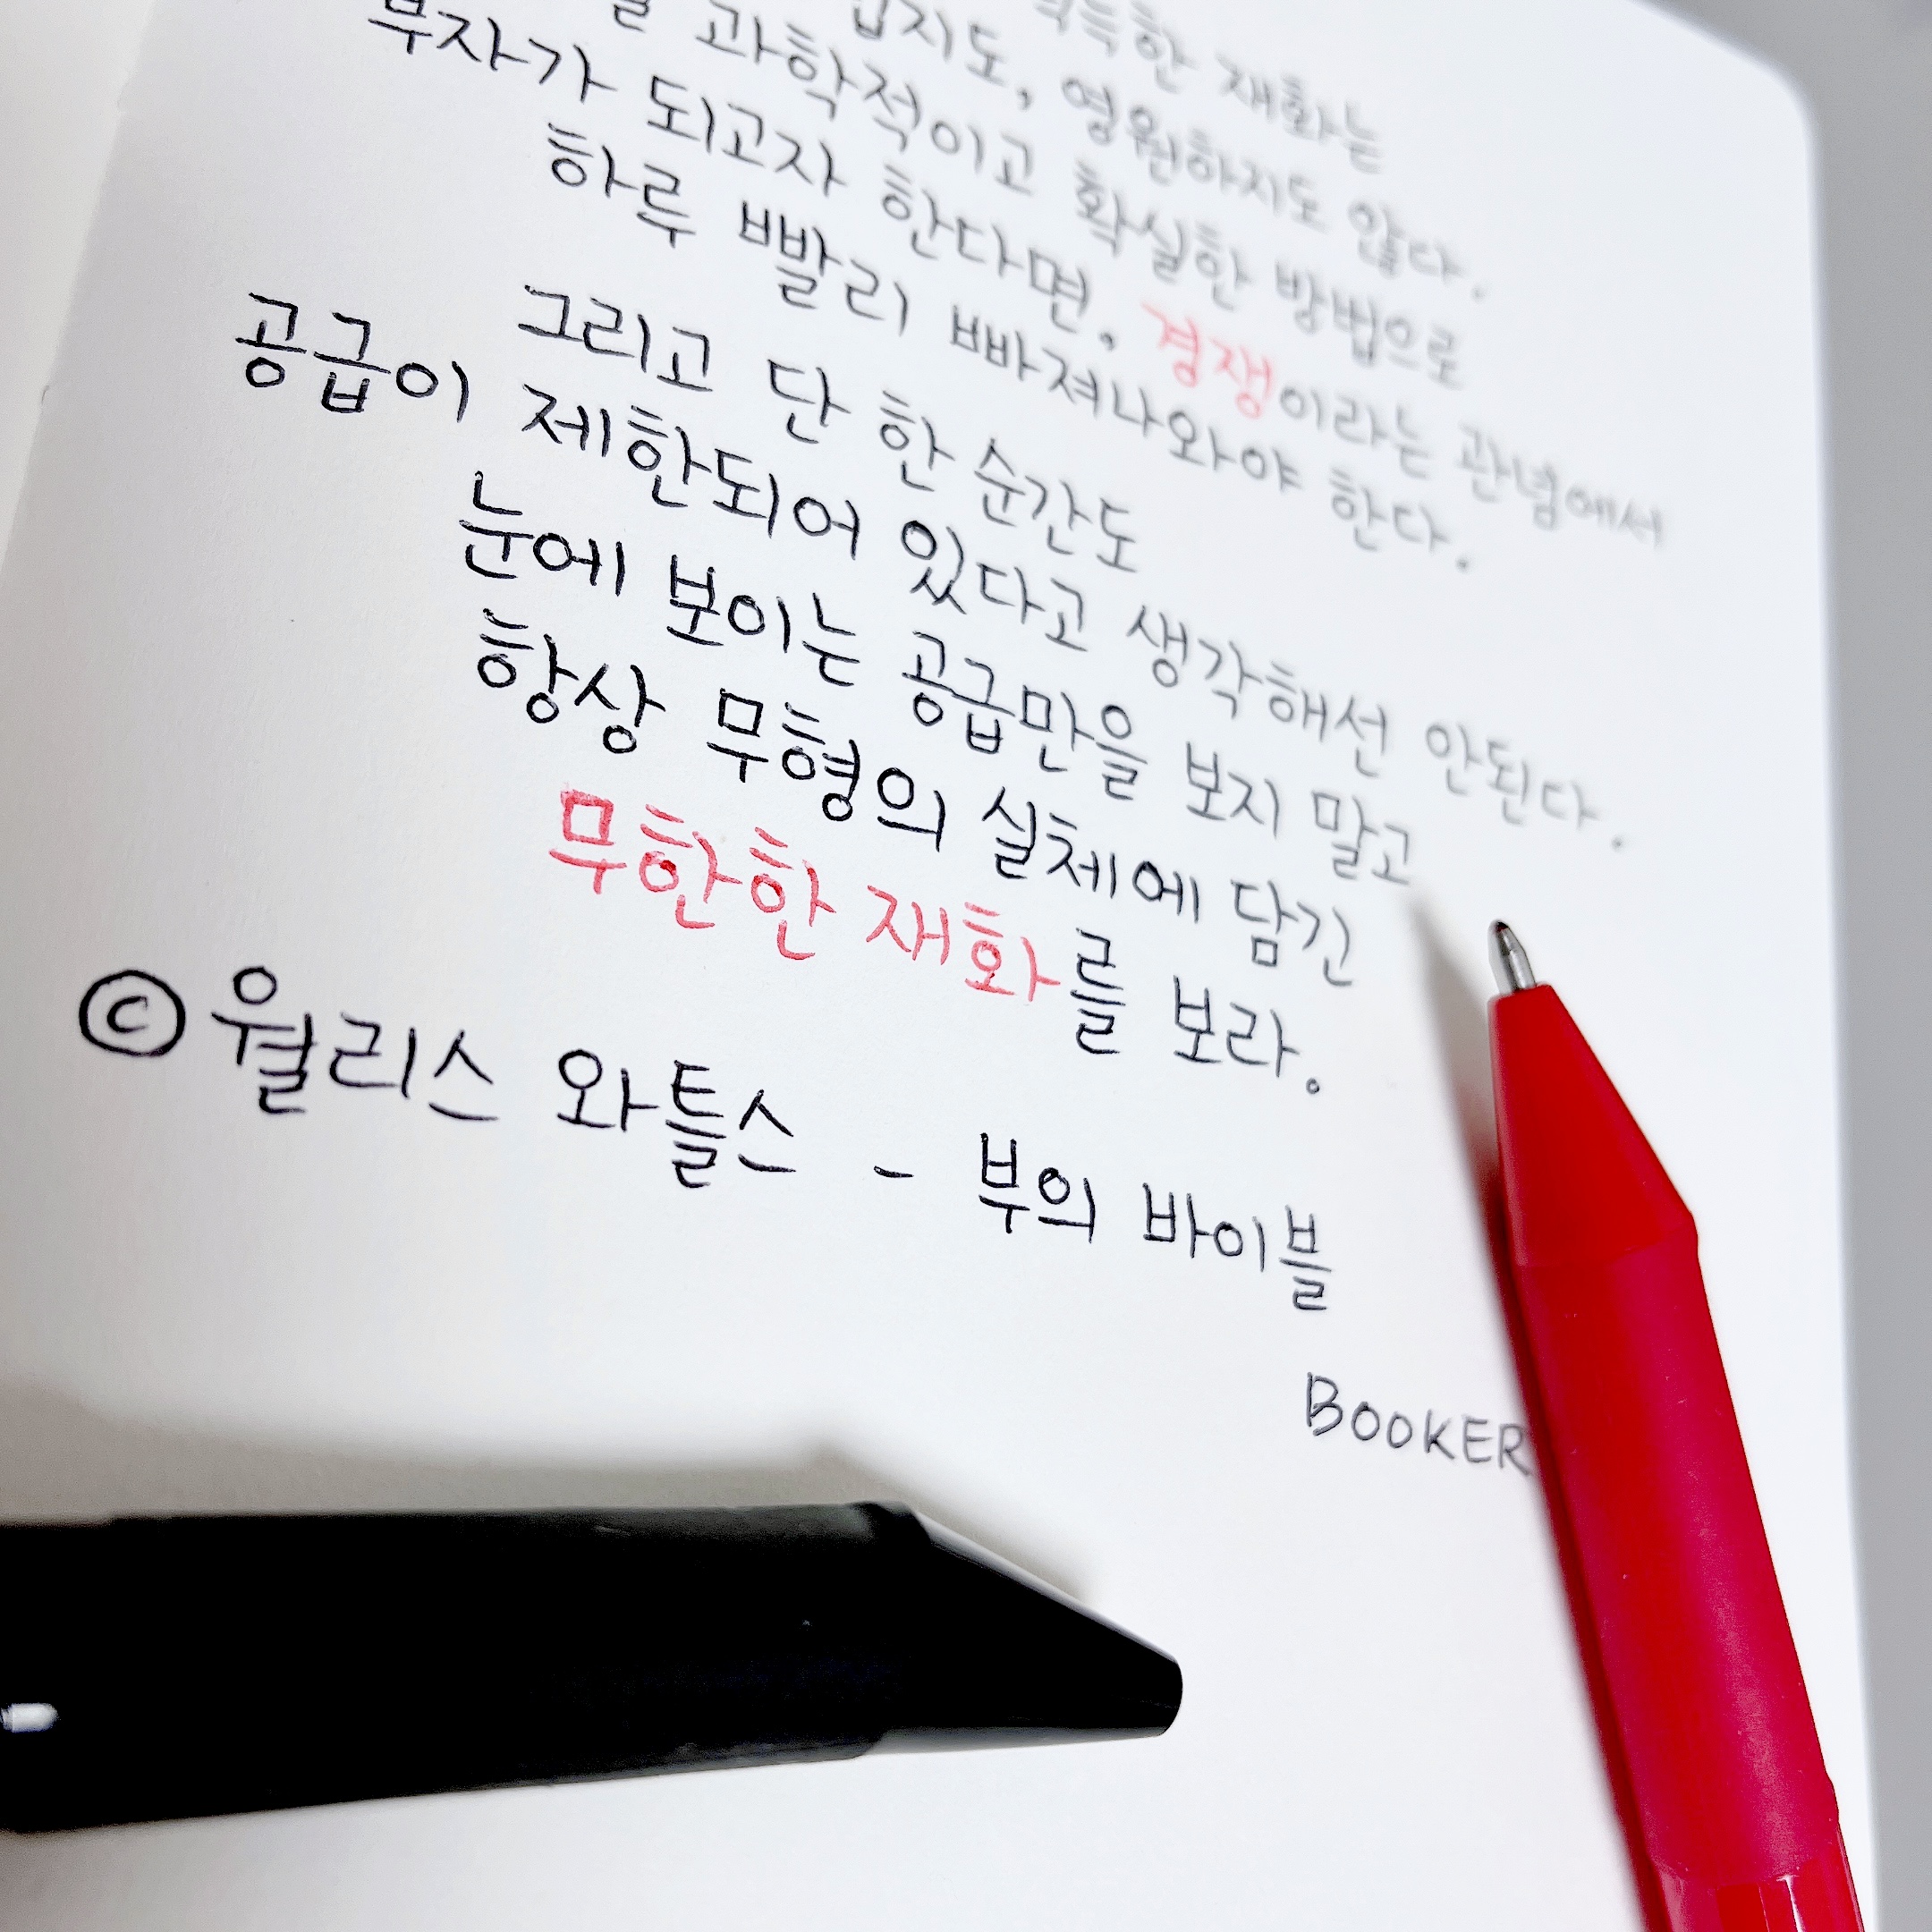 한 재화는
지도, 영원하지도 않다.
과학적이고 확실한 방법으로
부자가 되고자 한다면. 경쟁이라는 관념에서
하루 빨리 빠져나와야 한다.
그리고 단 한 순간도
공급이 제한되어 있다고 생각해선 안된다.
눈에 보이는 공급만을 보지 말고
항상 무형의 실체에 담긴
무한한 재화를 보라.
© 월리스 와틀스 - 부의 바이블
BOOKER